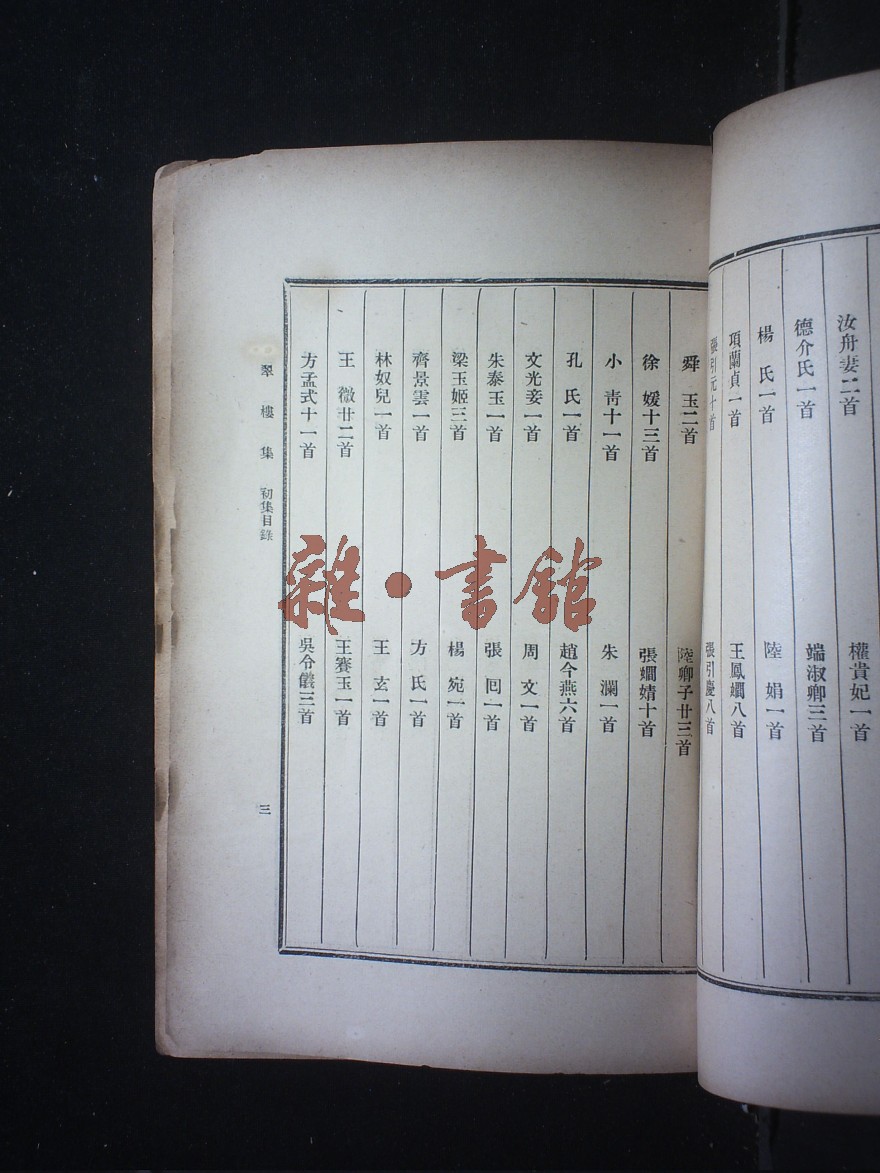 汝舟妻二首
權貴妃一首
德介氏一首
端淑卿三首
楊　氏一首
陸　娟一首
項蘭貞一首
王鳳嫻八首
張引元十首
張引慶八首
舜　玉二首
陸卿子廿三首
徐　媛十三首
張嫺婧十首
小　青十一首
朱　瀾一首
孔　氏一首
趙今燕六首
文光妾一首
周　文一首
朱泰玉一首
張　回一首
梁玉姬三首
楊　宛一首
齊景雲一首
方　氏一首
林奴兒一首
王　玄一首
王　薇廿二首
王賽玉一首
方孟式十一首
吳令儀三首
翠樓集　初集目錄
三
雜·書館